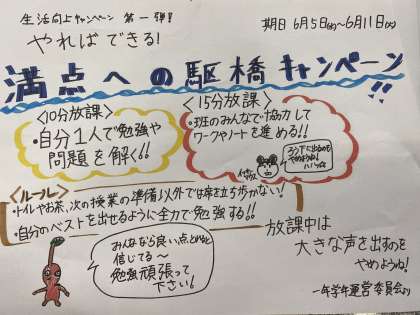 生活向上キャンペーン 第一弾!
やればできる!
期日 6月5日(水)〜6月11日(火)
満点への駆橋キャンペーン!!
〈10分放課〉
・自分1人で勉強や
問題を解く!!
〈15分放課〉
・班のみんなで協力して
ワークやノートを進める!!
〈ルール〉
・トイレやお茶、次の授業の準備以外では席を立ち歩かない!
・自分のベストを出せるように全力で勉強する!!
みんななら良い点とれると
信じてる〜
勉強頑張って
下さい!
放課中は
大きな声を出すのを
やめようね!
一年学年運営委員会より